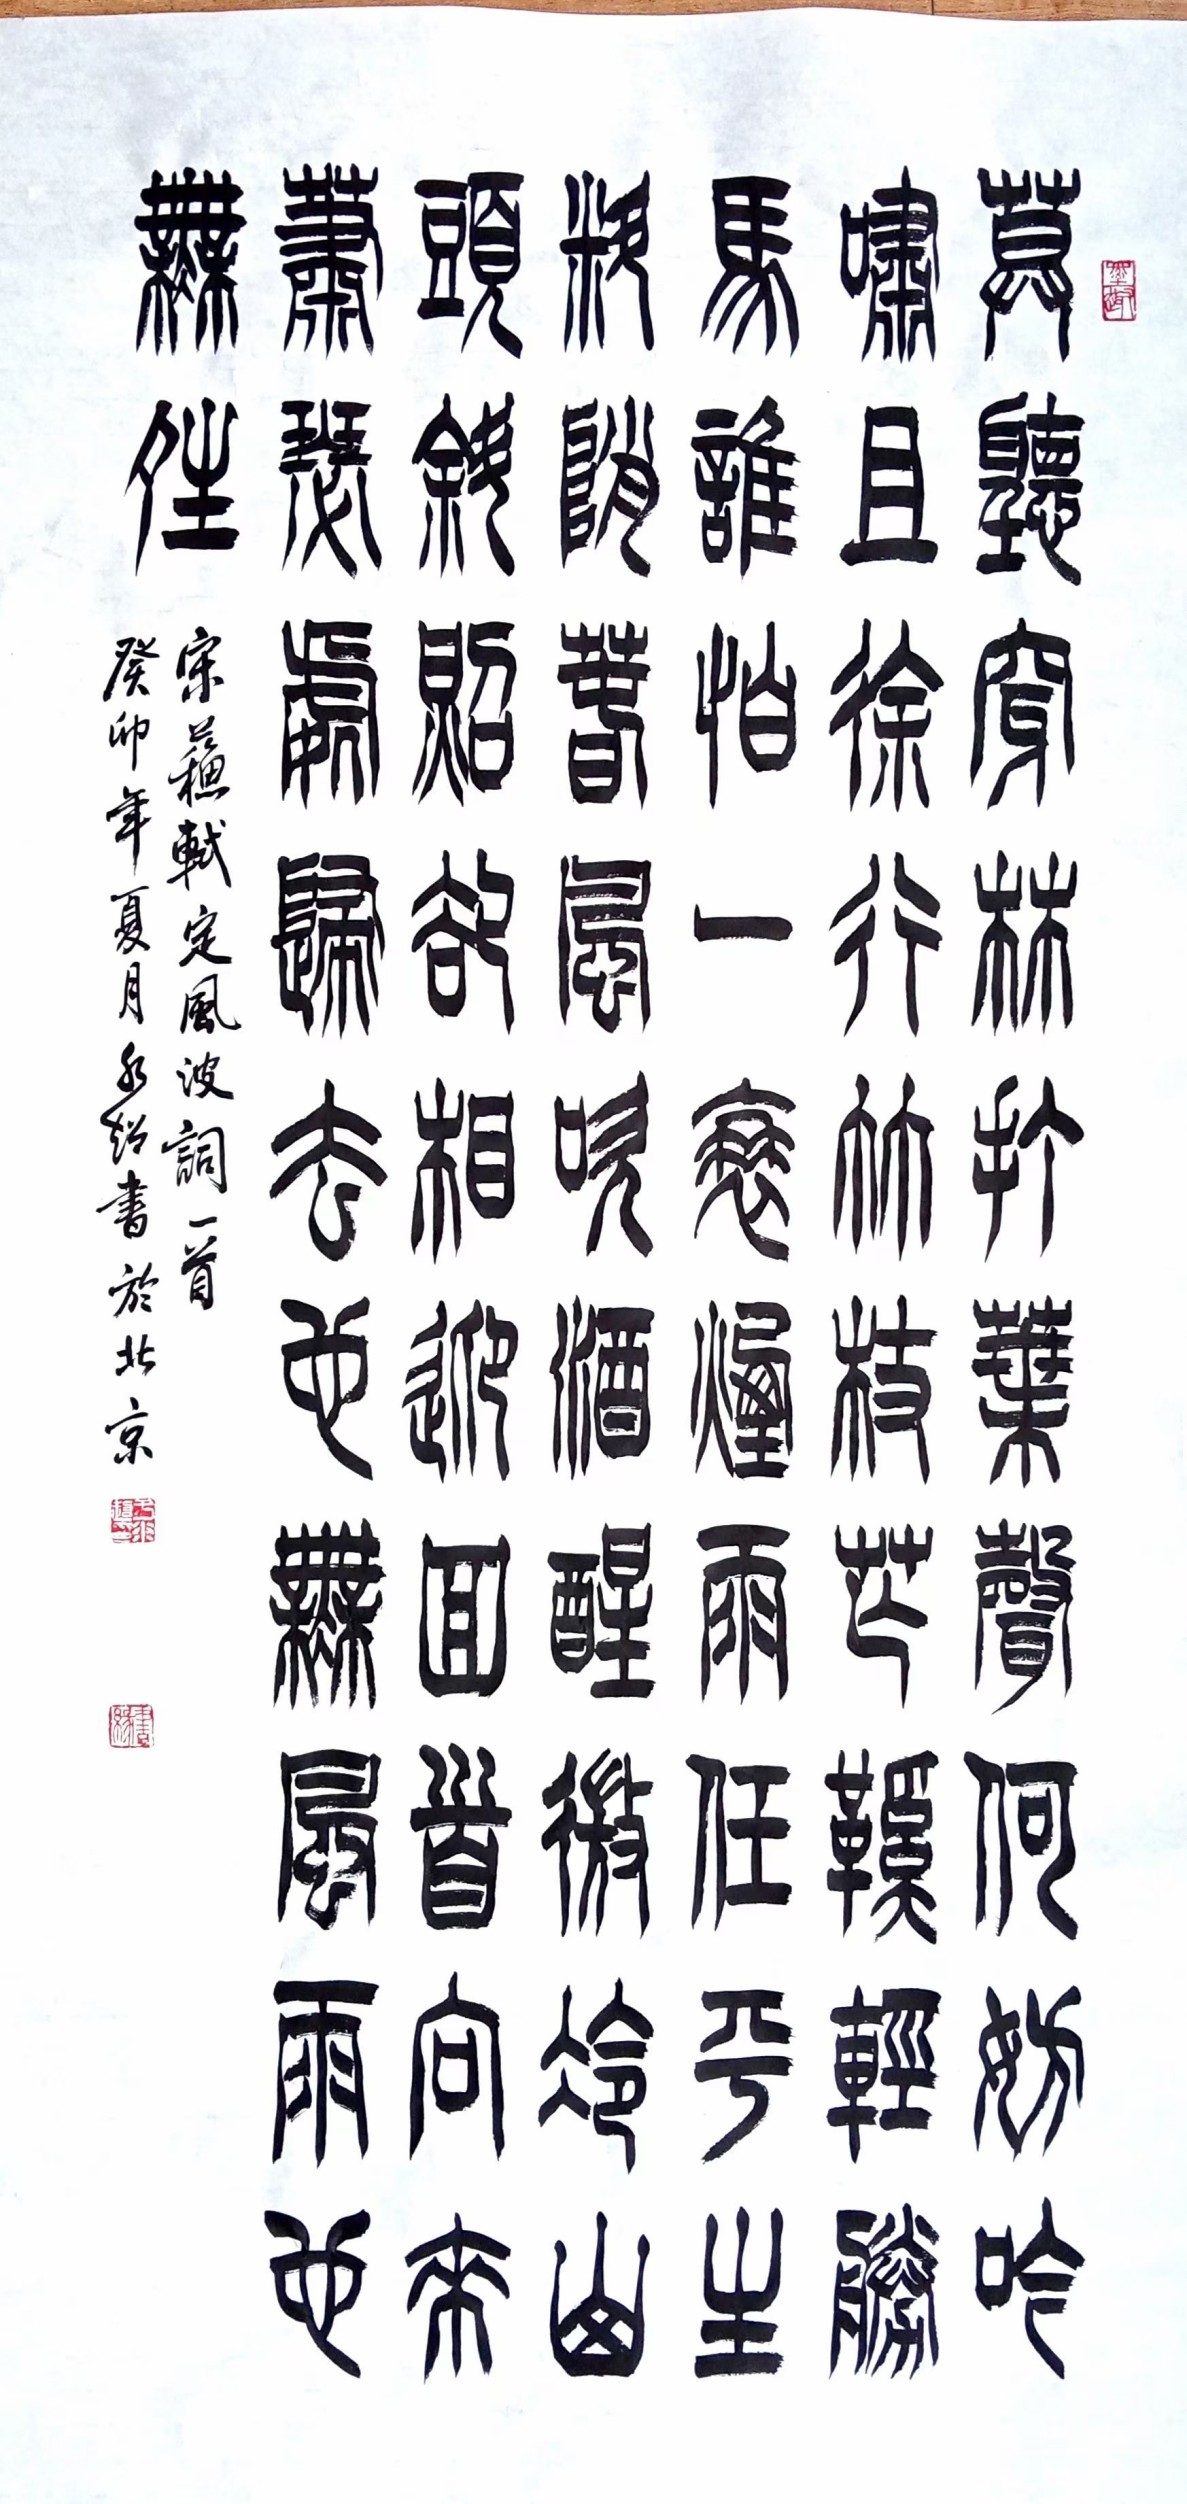 莫聽穿林打葉聲何妨吟
嘯且徐行竹杖芒鞵輕勝
馬誰怕一衰煙雨任平生
料陗春風吹酒醒微冷山
頭斜照卻相迎回首向來
蕭瑟處歸去也無風雨也
無夝
宋蘇軾定風波詞一首
癸卯年夏月書於北京